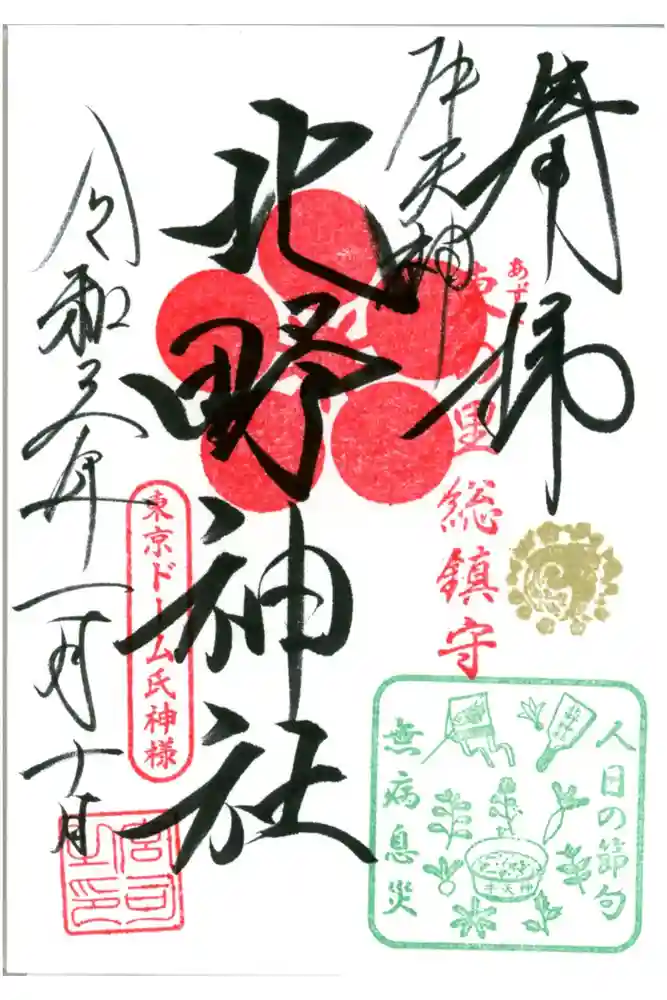 奉拝
牛天神
東の里総鎮守
北野神社
東京ドーム氏神様
令和三年一月十日
宮司之印
人日の節句
無病息災
牛天神